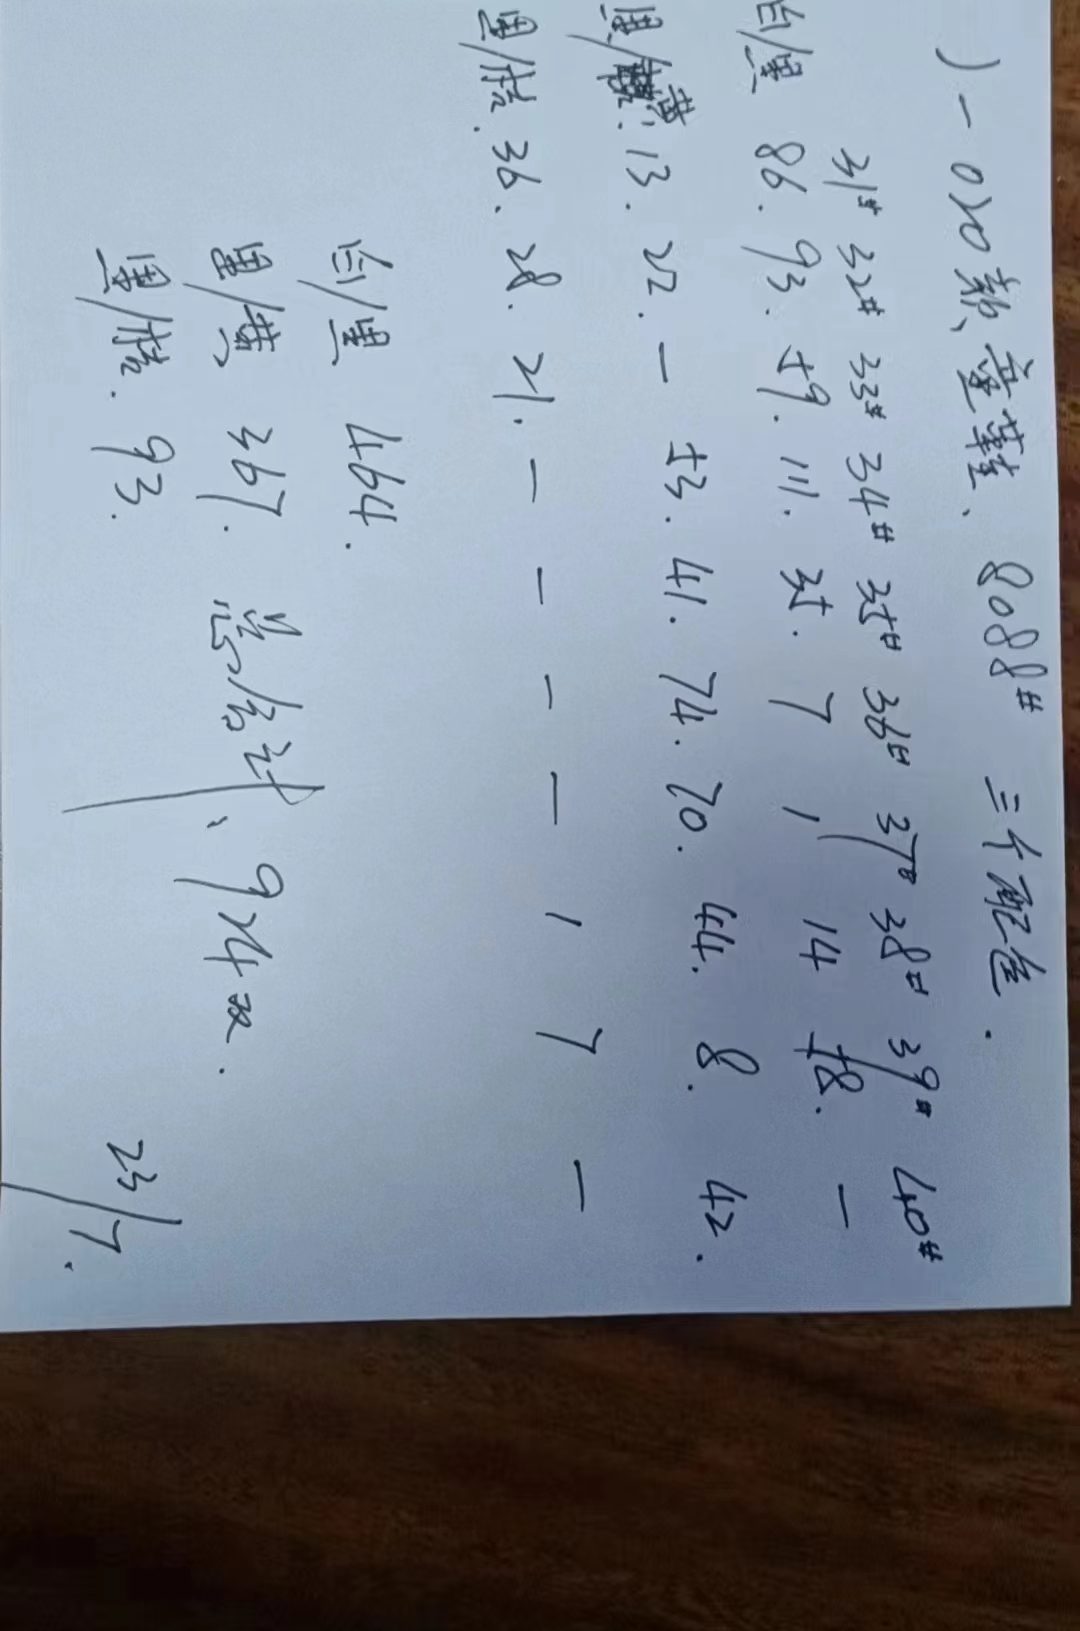 J-020款童鞋、8088# 三个配色.
31# 32# 33# 34# 35# 36# 37# 38# 39# 40#
白/黑 86. 93. 59. 111. 35. 7 1 14 58. —
黑/黄. 13. 22. — 53. 41. 74. 70. 44. 8. 42.
黑/桔. 36. 28. 21. — — — — 1 7 —
白/黑 464.
黑/黄 367. 总合计、924双.
黑/桔. 93.
23/7.